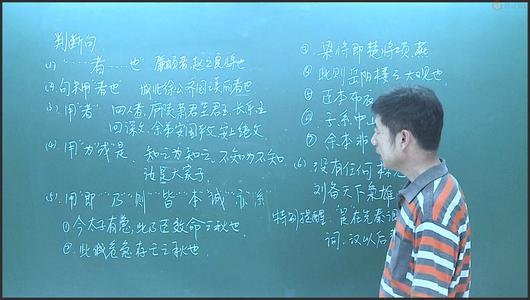 判断句
(1) "……者……也" 廉颇者赵之良将也
(2) 句末用"者也" 城北徐公齐国美丽者也
(3) 用"者" 四人者,庐陵萧君圭君玉,长乐王
回深父,余弟安国平父安上纯父
(4) 用"为"或"是" 知之为知之,不知为不知
汝是大家子
(5) 用"即""乃""则""皆""本""诚""亦""系"
① 今太子有急,此乃臣效命之秋也
② 此诚危急存亡之秋也
③ 梁将即楚将项燕
④ 此则岳阳楼之大观也
⑤ 臣本布衣
⑥ 子系中山
⑦ 余本非
(6) 没有任何标志
刘备天下枭雄
特别提醒 是在先秦
词,汉以后